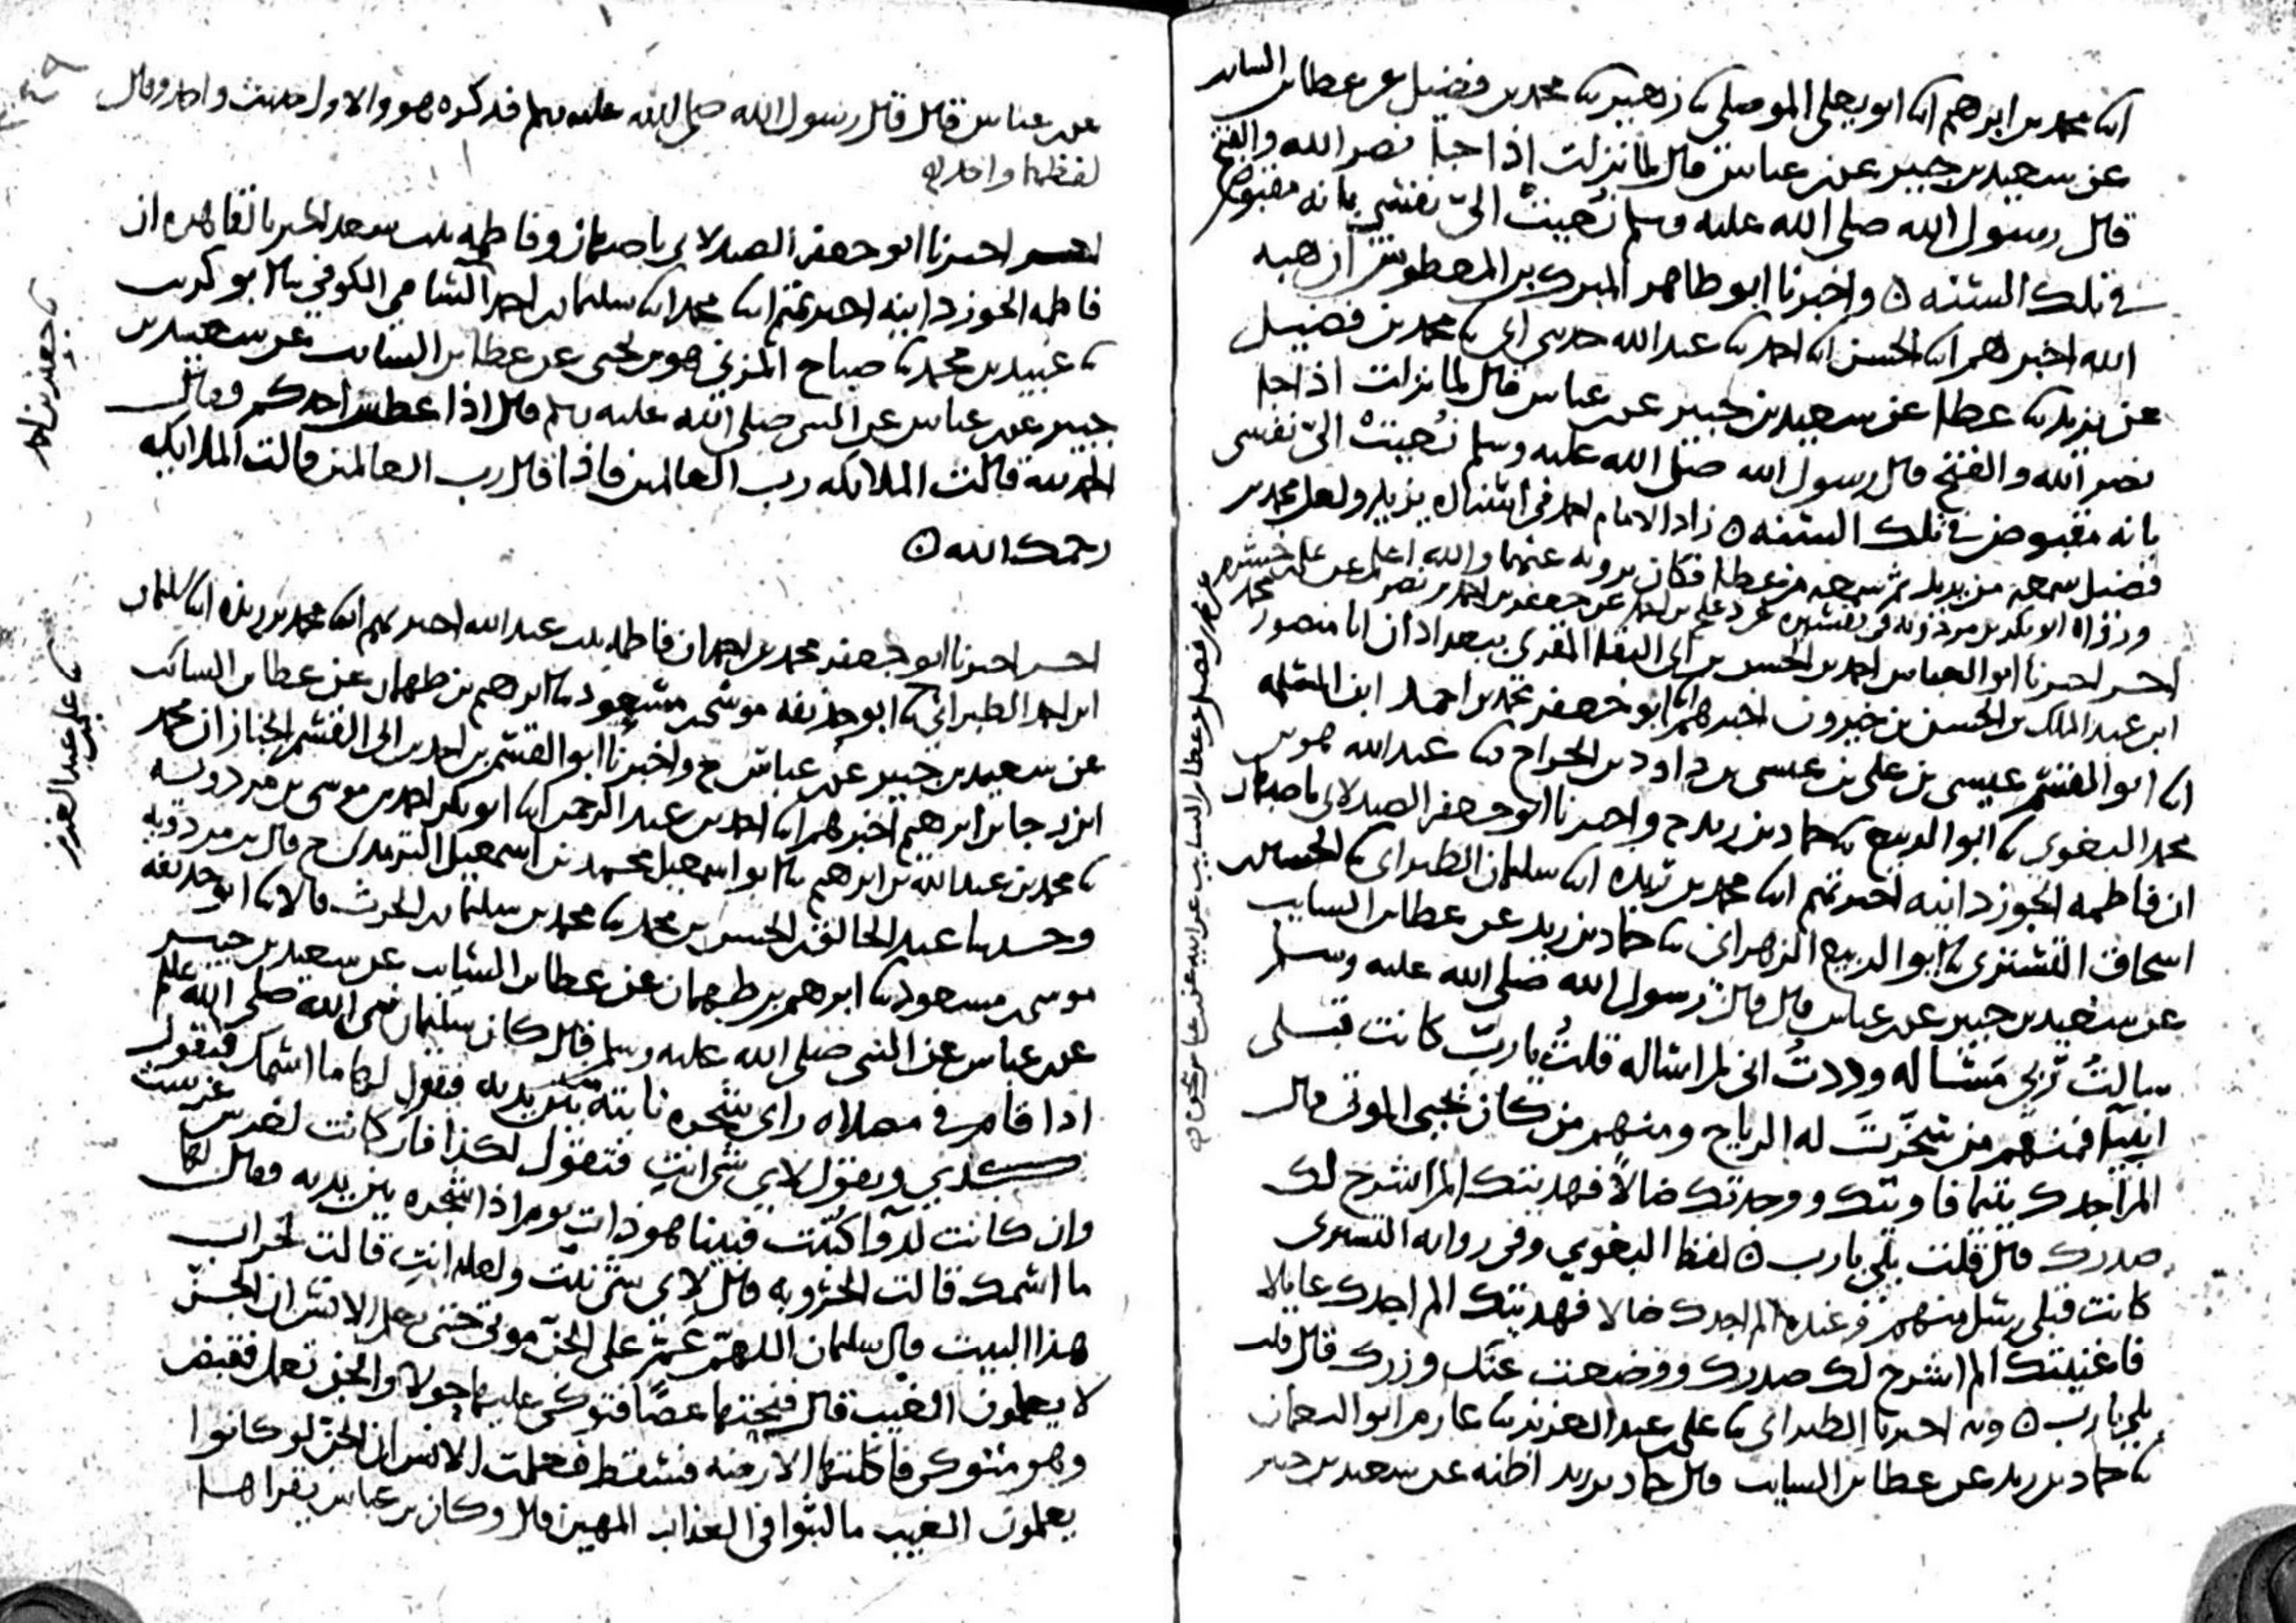 انا محمد بن ابرهيم انا ابو يعلى الموصلي نا زهير نا محمد بن فضيل عن عطا بن السايب
عن سعيد بن جبير عن بن عباس قال لما نزلت اذا جا نصر الله والفتح
قال رسول الله صلى الله عليه وسلم نُعِيَتْ اليّ نفسي بانه مقبوض
في تلك السنه ۞ واخبرنا ابو طاهر المبرك بن المعطوش ان هبه
الله اخبرهم انا الحسن انا احمد نا عبد الله حدثني ابي نا محمد بن فضيل
عن يزيد نا عطا عن سعيد بن جبير عن بن عباس قال لما نزلت اذا جا
نصر الله والفتح قال رسول الله صلى الله عليه وسلم نُعِيَتْ اليّ نفسي
بانه مقبوض في تلك السنه ۞ زاد الامام احمد في اسناده يزيد ولعل محمد بن
فضيل سمعه من يزيد ثم سمعه من عطا فكان يرويه عنهما والله اعلم
ورواه ابو بكر بن مردويه في تفسيره عن دعلج بن احمد عن جعفر بن احمد بن نصر عن علي بن خشرم
عن محمد بن فضيل عن عطا بن السايب عن بن عباس نحوه
اخبرنا ابو العباس احمد بن الحسن بن ابي البقا المقرى ببغداد ان ابا منصور محمد
ابن عبد الملك بن الحسن بن خيرون اخبرهم انا ابو جعفر محمد بن احمد ابن المسلمه
انا ابو القسم عيسى بن علي بن عيسى بن داود بن الجراح نا عبد الله هو بن
محمد البغوى نا ابو الربيع نا حماد بن زيد ح واخبرنا ابو جعفر الصيدلاني باصبهان
ان فاطمه الجوزدانيه اخبرتهم انا محمد بن ريذه انا سليمان الطبراني نا الحسين بن
اسحاق التسترى نا ابو الربيع الزهراني نا حماد بن زيد عن عطا بن السايب
عن سعيد بن جبير عن بن عباس قال قال رسول الله صلى الله عليه وسلم
سالتُ ربي مَسْالة وددتُ اني لم اساله قلتُ يا ربّ كانت قبلي
انبيا فمنهم من سَخَّرْتَ له الرياح ومنهم من كان يحيى الموتى قال
الم اجدك يتيما فاويتك ووجدتك ضالاً فهديتك الم اشرح لك
صدرك قال قلت بلى يا رب ۞ لفظ البغوي وفي رواية التسترى
كانت قبلي رسل منهم الم اجدك ضالا فهديتك الم اجدك عايلا
فاغنيتك الم اشرح لك صدرك ووضعت عنك وزرك قال قلت
بلى يا رب ۞ وبه اخبرنا الطبراني نا علي بن عبد العزيز نا عارم ابو النعمان
نا حماد بن زيد عن عطا بن السايب قال حماد بن زيد اظنه عن سعيد بن جبير
عن بن عباس قال قال رسول الله صلى الله عليه وسلم فذكره هو والاول حديث واحد وقال
لفظهما واحد
اخبرنا ابو جعفر الصيدلاني باصبهان وفاطمه بنت سعد الخير بالقاهره ان
فاطمه الجوزدانيه اخبرتهم انا محمد انا سليمان بن احمد الشامي الكوفي نا ابو كريب
نا عبيد بن محمد نا صباح المزني هو بن يحيى عن عطا بن السايب عن سعيد بن
جبير عن بن عباس عن النبي صلى الله عليه وسلم قال اذا عطس احدكم فقال
الحمد لله قالت الملايكه رب العالمين فاذا قال رب العالمين قالت الملايكه
رحمك الله ۞
نا جعفر بن احمد
اخبرنا ابو جعفر محمد بن احمد ان فاطمه بنت عبد الله اخبرتهم انا محمد بن ريذه انا سليمان
ابن احمد الطبراني نا ابو حذيفه موسى بن مسعود نا ابرهيم بن طهمان عن عطا بن السايب
نا علي بن عبد العزيز
عن سعيد بن جبير عن بن عباس ح واخبرنا ابو القسم بن احمد بن ابي القسم الخباز ان محمد
ابن رجا بن ابرهيم اخبرهم انا احمد بن عبد الرحمن انا ابو بكر احمد بن موسى بن مردويه
نا محمد بن عبد الله بن ابرهيم نا ابو اسمعيل محمد بن اسمعيل الترمذى ح قال بن مردويه
وحدثنا عبد الخالق بن الحسن بن محمد نا محمد بن سليمان بن الحرث قالا نا ابو حذيفه
موسى بن مسعود نا ابرهيم بن طهمان عن عطا بن السايب عن سعيد بن جبير
عن بن عباس عن النبي صلى الله عليه وسلم قال كان سليمان نبي الله صلى الله عليه وسلم
اذا قام في مصلاه راى شجره نابته بين يديه فيقول لها ما اسمك فتقول
كذي ويقول لاي شي انتِ فتقول لكذا فان كانت لغرس غرست
وان كانت لدوا كُتبت فبينا هو ذات يوم اذا شجره بين يديه فقال لها
ما اسمك قالت الخروبه قال لاي شي نبتّ ولعله انتِ قالت لخراب
هذا البيت قال سليمان اللهمّ عَمِّ على الجنّ موتى حتى يعلم الانس ان الجنّ
لا يعلمون الغيب قال فنحتها عصًا فتوكى عليها حولا والجن تعمل فقبض
وهو متوكى فاكلتها الارضه فسقط فعلمت الانس ان الجن لو كانوا
يعلمون الغيب ما لبثوا في العذاب المهين قال وكان بن عباس يقراها